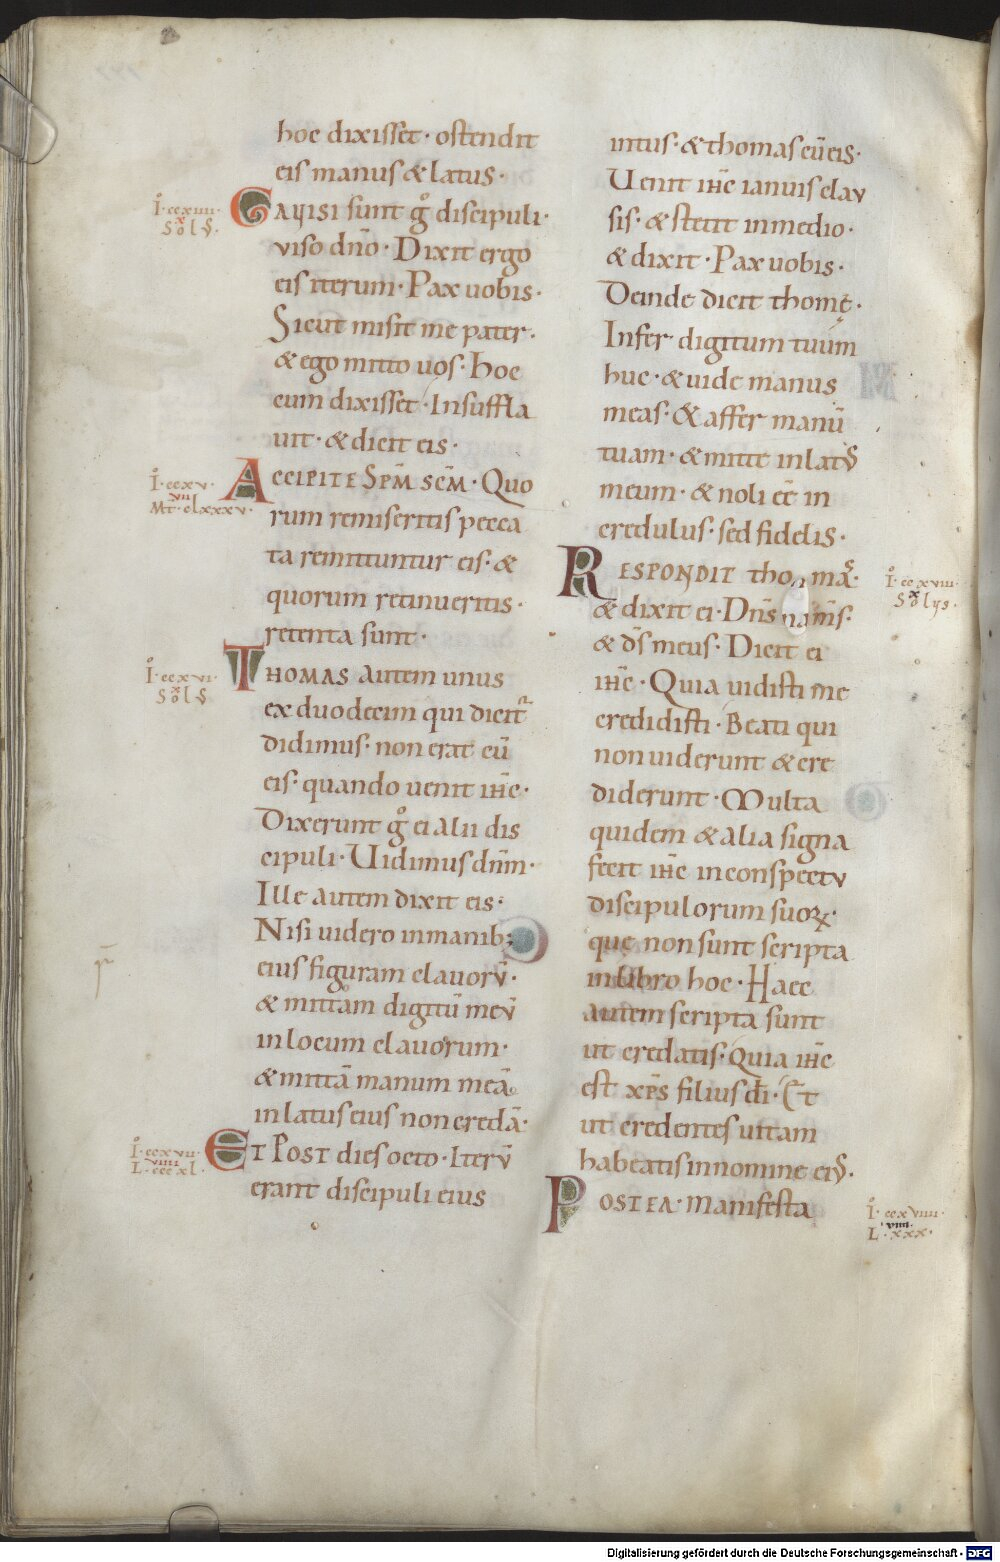 hoc dixisset· ostendit
eis manus & latus·
I·ccxiiii·
x
Sol᷒·
GAUISI sunt gͦ discipuli·
viso dn̄o· Dixit ergo
eis iterum· Pax uobis·
Sicut misit me pater·
& ego mitto uos· Hoc
cum dixisset· Insuffla
uit· & dicit eis·
I·ccxv·
vii
Mt·clxxxv·
ACCIPITE SPM̄ SCM̄· Quo
rum remiseritis pecca
ta remittuntur eis· &
quorum retinueritis·
retenta sunt·
I·ccxvi·
x
Sol᷒
THOMAS autem unus
ex duodecim qui dicit᷑
didimus· non erat cū
eis· quando uenit ihc̄·
Dixerunt gͦ ei alii dis
cipuli· Uidimus dnm̄·
Ille autem dixit eis·
Nisi uidero in manib;
eius figuram clauorū·
& mittam digitū meū
in locum clauorum·
& mittā manum meā
in latus eius non credā·
I·ccxvii·
viiii
L·cccxl·
ET POST dies octo· Iterū
erant discipuli eius
intus· & thomas cū eis·
Uenit ihc̄ ianuis clau
sis· & stetit in medio·
& dixit· Pax uobis·
Deinde dicit thomę·
Infer digitum tuum
huc· & uide manus
meas· & affer manū
tuam· & mitte in lat᷒
meum· & noli eē in
credulus· sed fidelis·
RESPONDIT thomas·
I·ccxviii·
x
Solus·
& dixit ei· Dn̄s meus·
& ds̄ meus· Dicit ei
ihc̄· Quia uidisti me
credidisti· Beati qui
non uiderunt & cre
diderunt· Multa
quidem & alia signa
fecit ihc̄ in conspectu
discipulorum suoꝝ·
quę non sunt scripta
in libro hoc· Haec
autem scripta sunt
ut credatis· Quia ihc̄
est xp̄s filius di̅· Et
ut credentes uitam
habeatis in nomine ei᷒·
POSTEA· manifesta
I·ccxviiii·
viiii·
L·xxx·
Digitalisierung gefördert durch die Deutsche Forschungsgemeinschaft - DFG